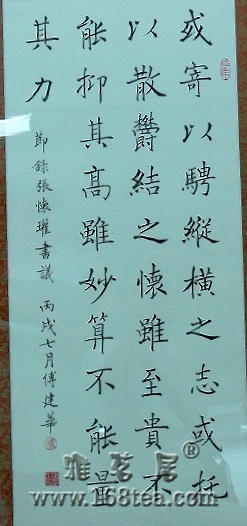 或寄以騁縱橫之志或托
以散鬱結之懷雖至貴不
能抑其高雖妙算不能量
其力
節錄張懷瓘書議 丙戌七月傅建華
雅茗居®
www.168tea.com